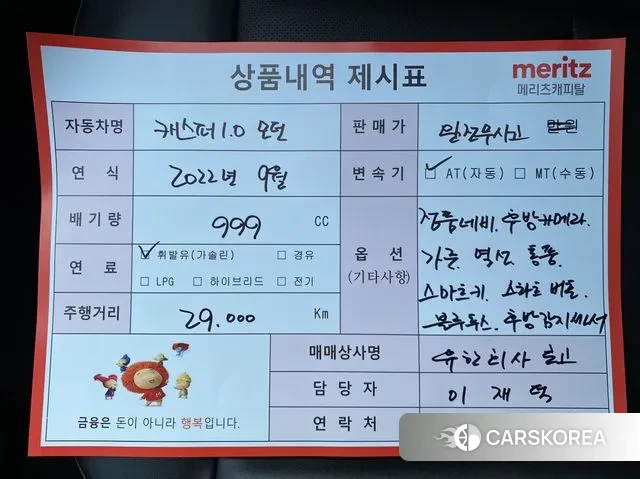 상품내역 제시표
meritz
메리츠캐피탈
자동차명 캐스퍼 1.0 모던
판매가 완전무사고 만원
연 식 2022년 9월
변속기 ☑ AT(자동) ☐ MT(수동)
배기량 999 CC
옵 션
(기타사항)
정품네비. 후방카메라.
가죽. 열선 통풍.
스마트키. 스타트 버튼.
블루투스. 후방감지센서
연 료 ☑ 휘발유(가솔린) ☐ 경유
☐ LPG ☐ 하이브리드 ☐ 전기
주행거리 29.000 Km
매매상사명
담 당 자
연 락 처
금융은 돈이 아니라 행복입니다.
CARSKOREA